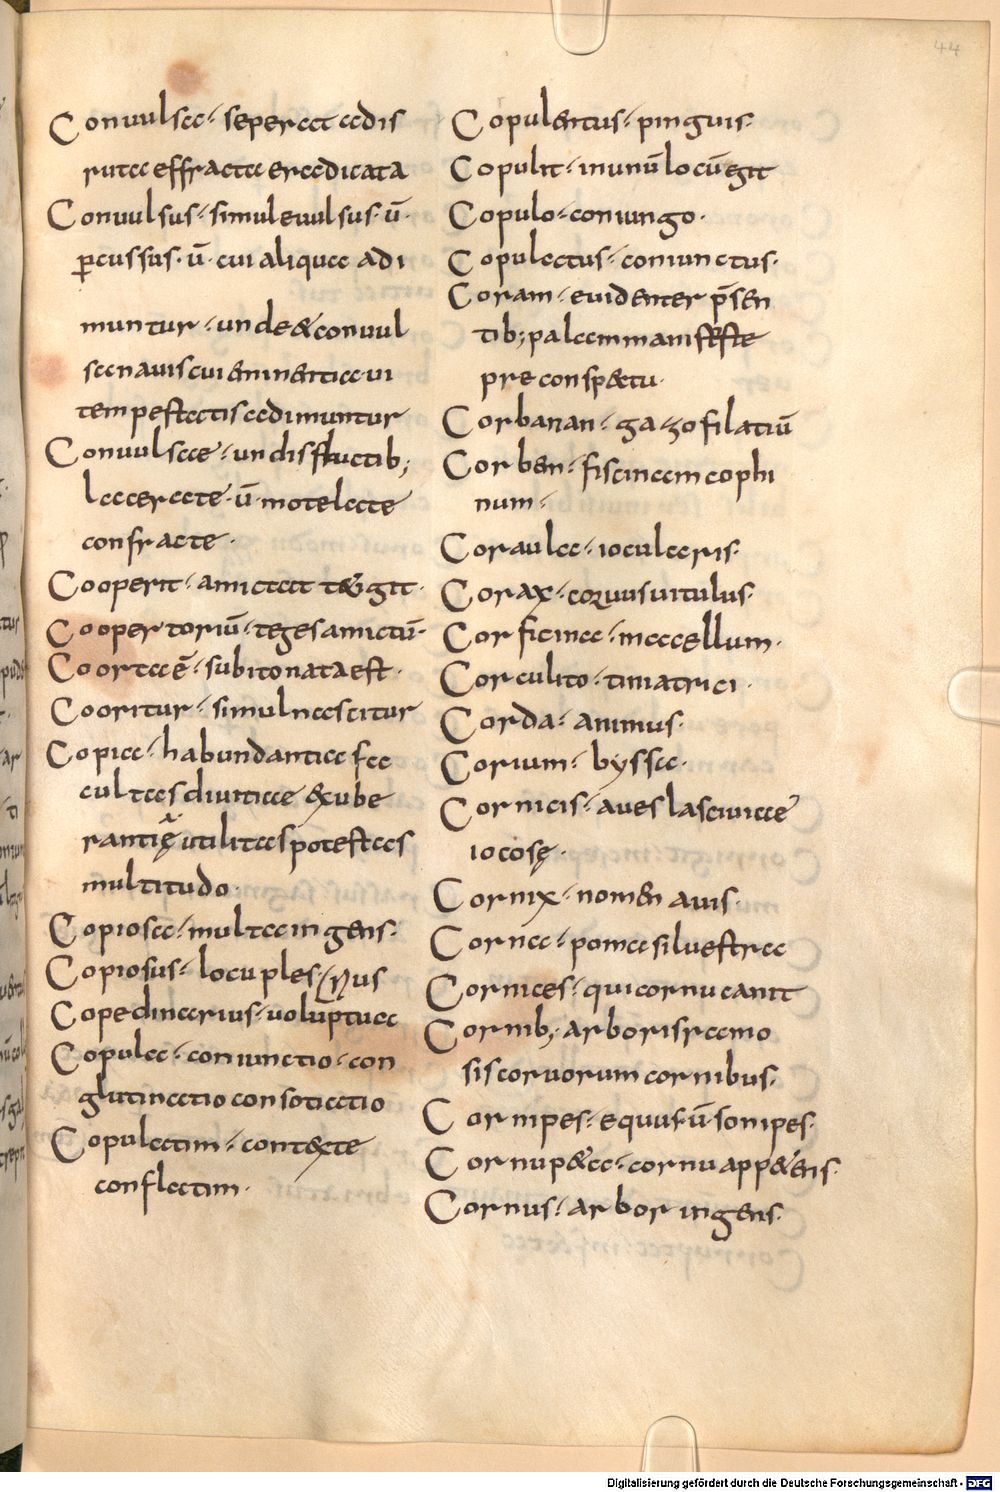 44
Conuulsa· seperata dis
ruta effracta eradicata
Conuulsus· simul euulsus· ū·
p̱cussus· ū· cui aliqua adi
muntur· unde & conuul
sa nauis cui eminentia ui
tempestatis adimuntur
Conuulsae· undis fluctib;
laceratae· ū· motel acte
confractae·
Cooperit· amictat t&git·
Coopertoriū· teges amictū·
Coorta ē· subito nata est·
Cooritur· simul nascitur
Copia· habundantia fa
cultas diuitiae & ube
rantię utilitas potestas
multitudo·
Copiosa· multa ingens·
Copiosus· locuples·
Copedinarius· voluptua
Copula· coniunctio· con
glutinatio consotiatio
Copulatim· contexte
conflatim·
Copulentus· pinguis·
Copulit· in unū locū egit
Copulo· coniungo·
Copulatus· coniunctus·
Coram· euidenter p̄sen
tib; palam manifeste
pre conspectu·
Corbanan· gazofilatiū
Corben· fiscinam cophi
num·
Coraula· iocularis·
Corax· coruus uitulus·
Corficina· macellum·
Corculito· timiatrici·
Corda· animus·
Corium· byssa·
Cornicis· aues lasciuiae
iocosę·
Cornix· nomen auis·
Corna· poma siluestrea
Cornices· qui cornu canit
Cornib; arboris ramo
sis coruorum cornibus·
Cornipes· equus· ū sonipes·
Cornupeta· cornu app&ens·
Cornus· arbor ingens·
Digitalisierung gefördert durch die Deutsche Forschungsgemeinschaft - DFG